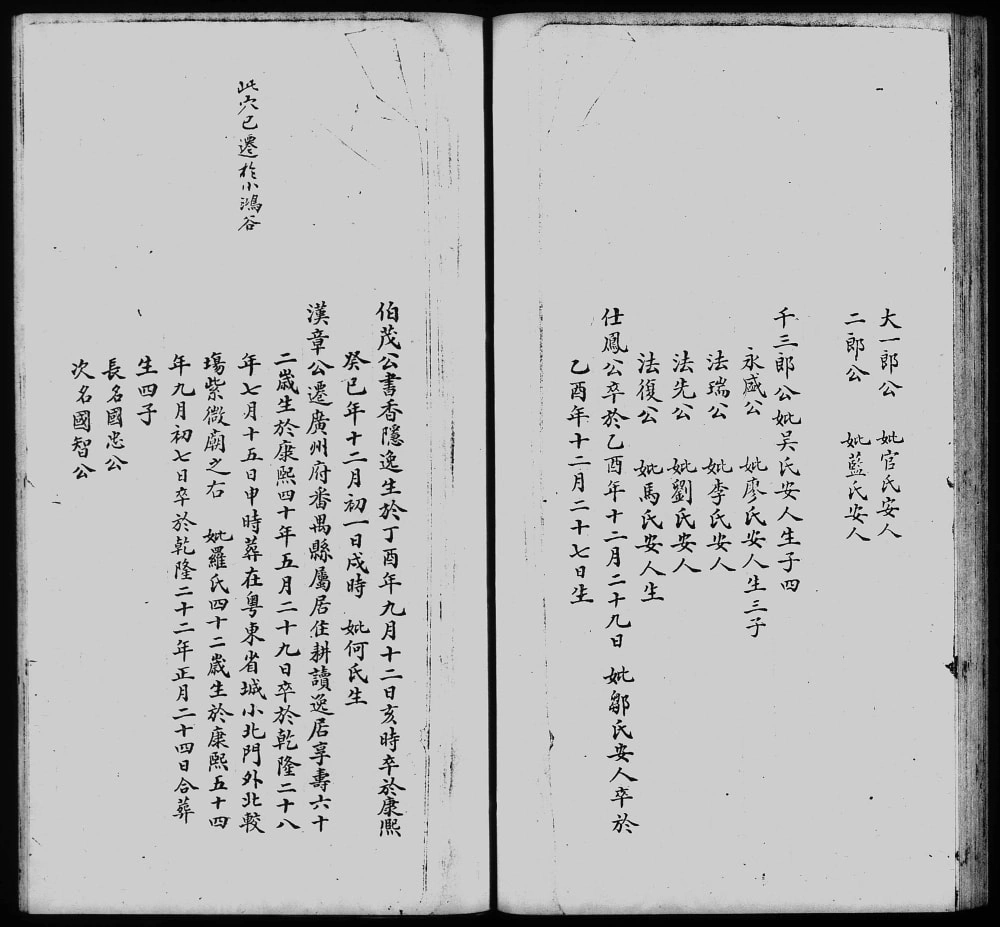 大一郎公　妣官氏安人
二郎公　妣藍氏安人
千三郎公妣吴氏安人生子四
永盛公　妣廖氏安人生三子
法瑞公　妣李氏安人
法先公　妣劉氏安人
法復公　妣馬氏安人生
仕鳳公卒於乙酉年十二月二十九日　妣鄒氏安人卒於
乙酉年十二月二十七日生
伯茂公書香隱逸生於丁酉年九月十二日亥時卒於康熙
癸巳年十二月初一日戌時　妣何氏生
漢章公遷廣州府番禺縣屬居住耕讀逸居享壽六十
二歲生於康熙四十年五月二十九日卒於乾隆二十八
年七月十五日申時葬在粵東省城小北門外北較
塲紫微廟之右　妣羅氏四十二歲生於康熙五十四
年九月初七日卒於乾隆二十二年正月二十四日合葬
此穴已遷於小鴻谷
生四子
長名國忠公
次名國智公